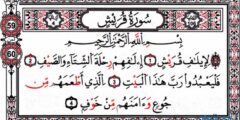 سُورَةُ قُرَيْشٍ
بِسْمِ اللَّهِ الرَّحْمَٰنِ الرَّحِيمِ
لِإِيلَٰفِ قُرَيْشٍ ١ إِۦلَٰفِهِمْ رِحْلَةَ الشِّتَآءِ وَالصَّيْفِ ٢
فَلْيَعْبُدُوا۟ رَبَّ هَٰذَا الْبَيْتِ ٣ الَّذِىٓ أَطْعَمَهُم مِّن
جُوعٍ وَءَامَنَهُم مِّنْ خَوْفٍ ٤